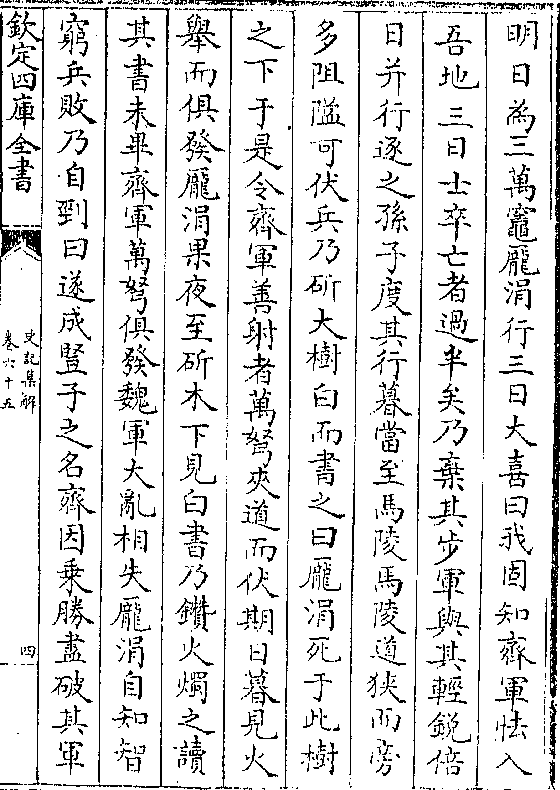 明日為三萬竈龎涓行三日大喜曰我固知齊軍怯入
吾地三日士卒亡者過半矣乃棄其步軍與其輕銳倍
日并行逐之孫子度其行暮當至馬陵馬陵道狹而旁
多阻隘可伏兵乃斫大樹白而書之曰龎涓死于此樹
之下于是令齊軍善射者萬弩夾道而伏期日暮見火
舉而俱發龎涓果夜至斫木下見白書乃鑽火燭之讀
其書未畢齊軍萬弩俱發魏軍大亂相失龎涓自知智
窮兵敗乃自剄曰遂成豎子之名齊因乗勝盡破其軍
欽定四庫全書
史記集解
卷六十五
四